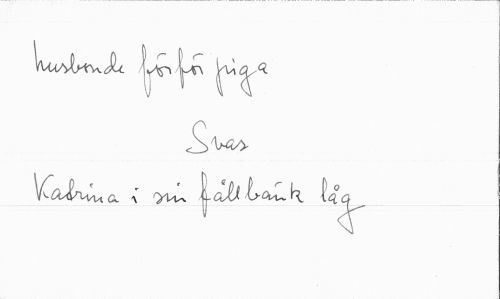 husbonde förför piga
Svar
Katrina i sin fållbänk låg